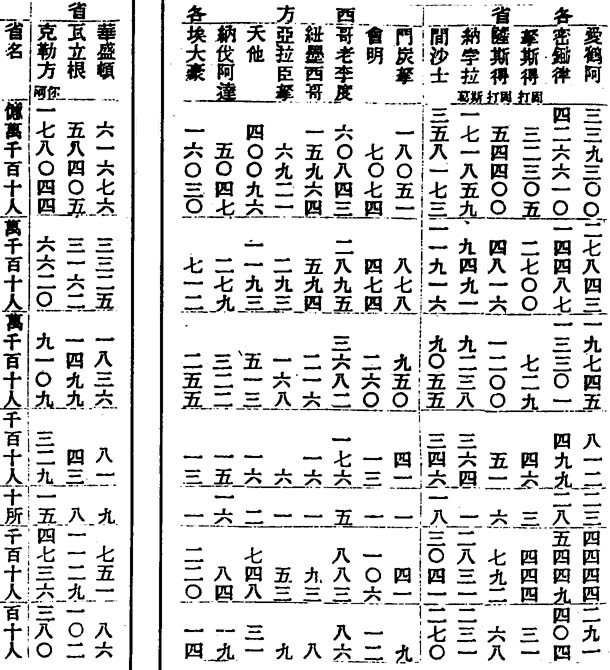 各省西方各
愛鶴阿 三三九三〇〇 二七八四三 一九七四五 八一二 二三 四四四四 二九一
密鋤律 四二六六一〇 一四四八七 一三三〇一 四九九 二八 五四四四 四〇四
摹斯得打固 三二三〇五 二七〇〇 七二九 四六 三 四四四 三一
薩斯得打固 五四四〇〇 四八一六 一二〇〇 五一 六 七九二 六八
納孛拉葛斯 一七一八五九 九四九一 九二三八 三六四 一 二八三一 二三一
間沙士 三五八一七三 一一九一六 九〇五五 三四六 一八 三〇四一 二七〇
門炭摹 一八〇五一 八七八 九五〇 四一 一 四一 九
會明 七〇七四 四七四 二六〇 一三 一 一〇六 一二
哥老李度 六〇八四三 二八九五 三六八二 一七六 五 八八三 八六
紐墨西哥 一五九六四 五九四 二一六 一六 一 九三 八
亞拉臣摹 六九二一 二九三 一六八 六 一 五三 九
天他 四〇〇九六 一一九三 五一三 一六 二 七四八 三一
納伐阿達 五〇四七 二七九 三二二 一五 一六 八四 一九
埃大豪 一六〇三〇 七一二 二五五 一三 一 二二〇 一四
省
華盛頓 六一六七六 三三二五 一八三六 八一 九 七五一 八六
瓦立根 五八四〇五 三一六二 一四九九 四三 八 一一二九 一〇二
克勒方呵尓 一七八〇四四 六六二〇 九一〇九 三二九 一五 四七三六 三八〇
省名 億萬千百十人 萬千百十人 萬千百十人 千百十人 十所 千百十人 百十人